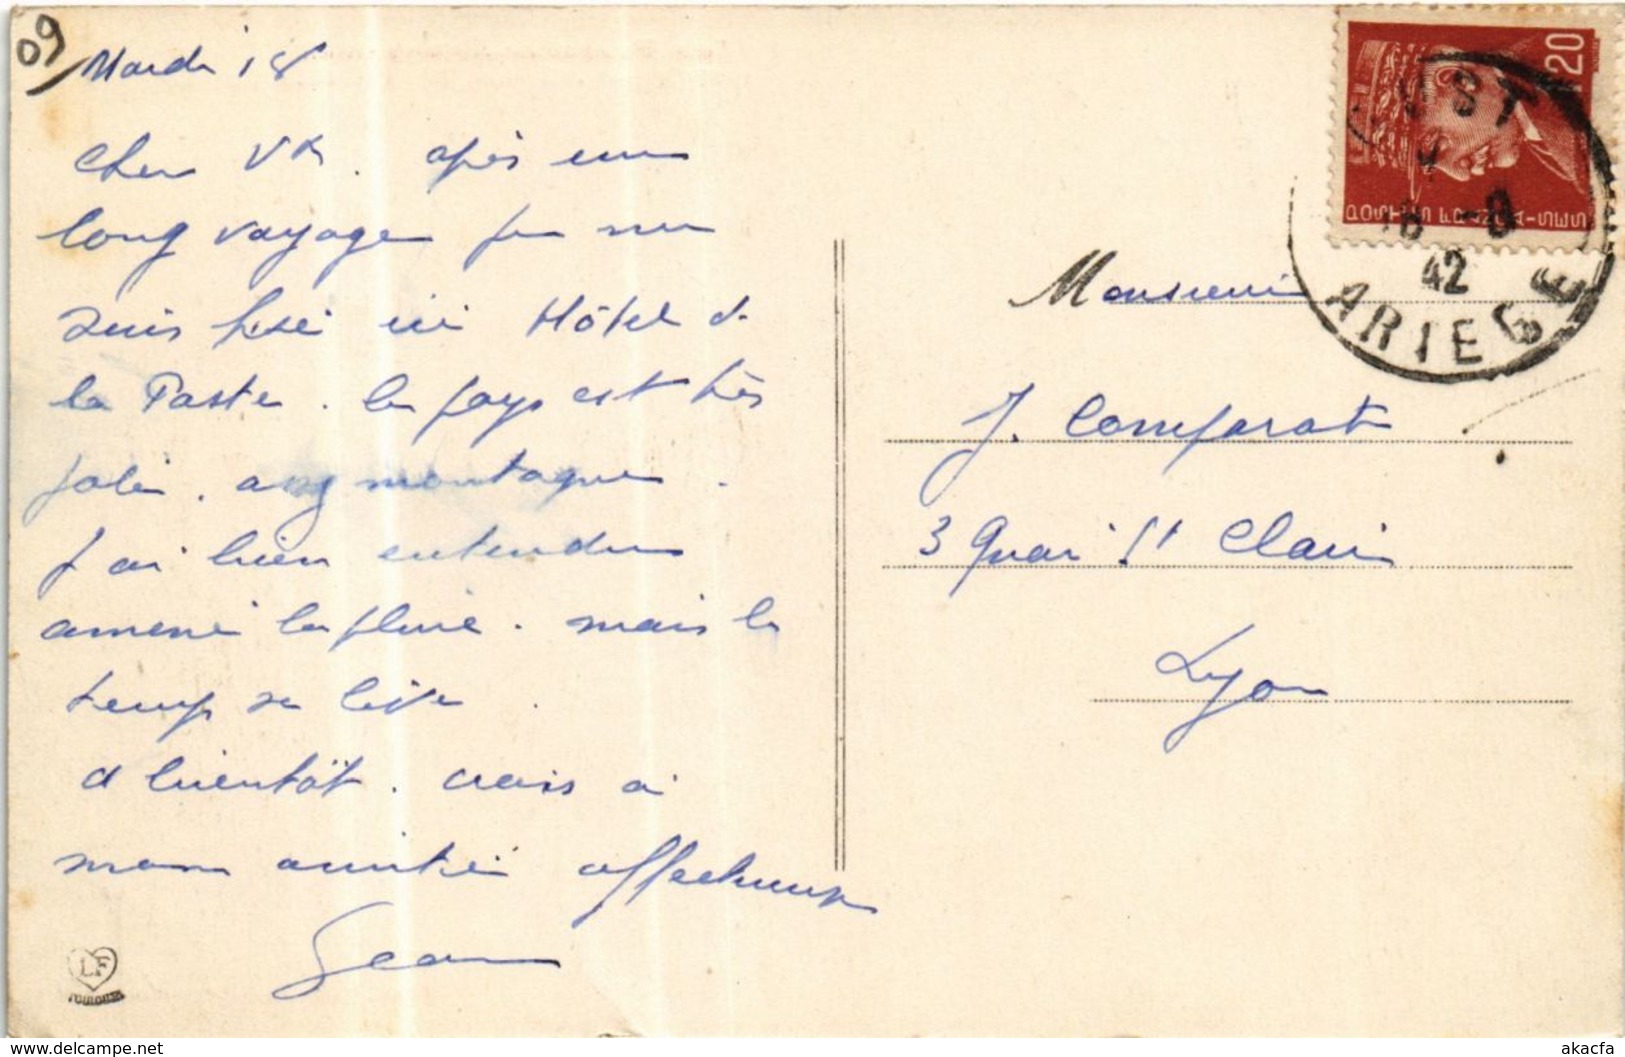 09
Mardi 18
Cher Vx. après un
long voyage je me
suis fixé ici Hôtel de
la Poste. le pays est très
joli. assez montagneux.
J'ai bien entendu
amené la pluie. mais le
temps se lève.
A bientôt. crois à
mon amitié affectueuse
Jean
LF
TOULOUSE
1F20
POSTES FRANÇAISES
UST
18 -8
42
ARIEGE
Monsieur
J. Comparat
3 Quai St Clair
Lyon
akacfa